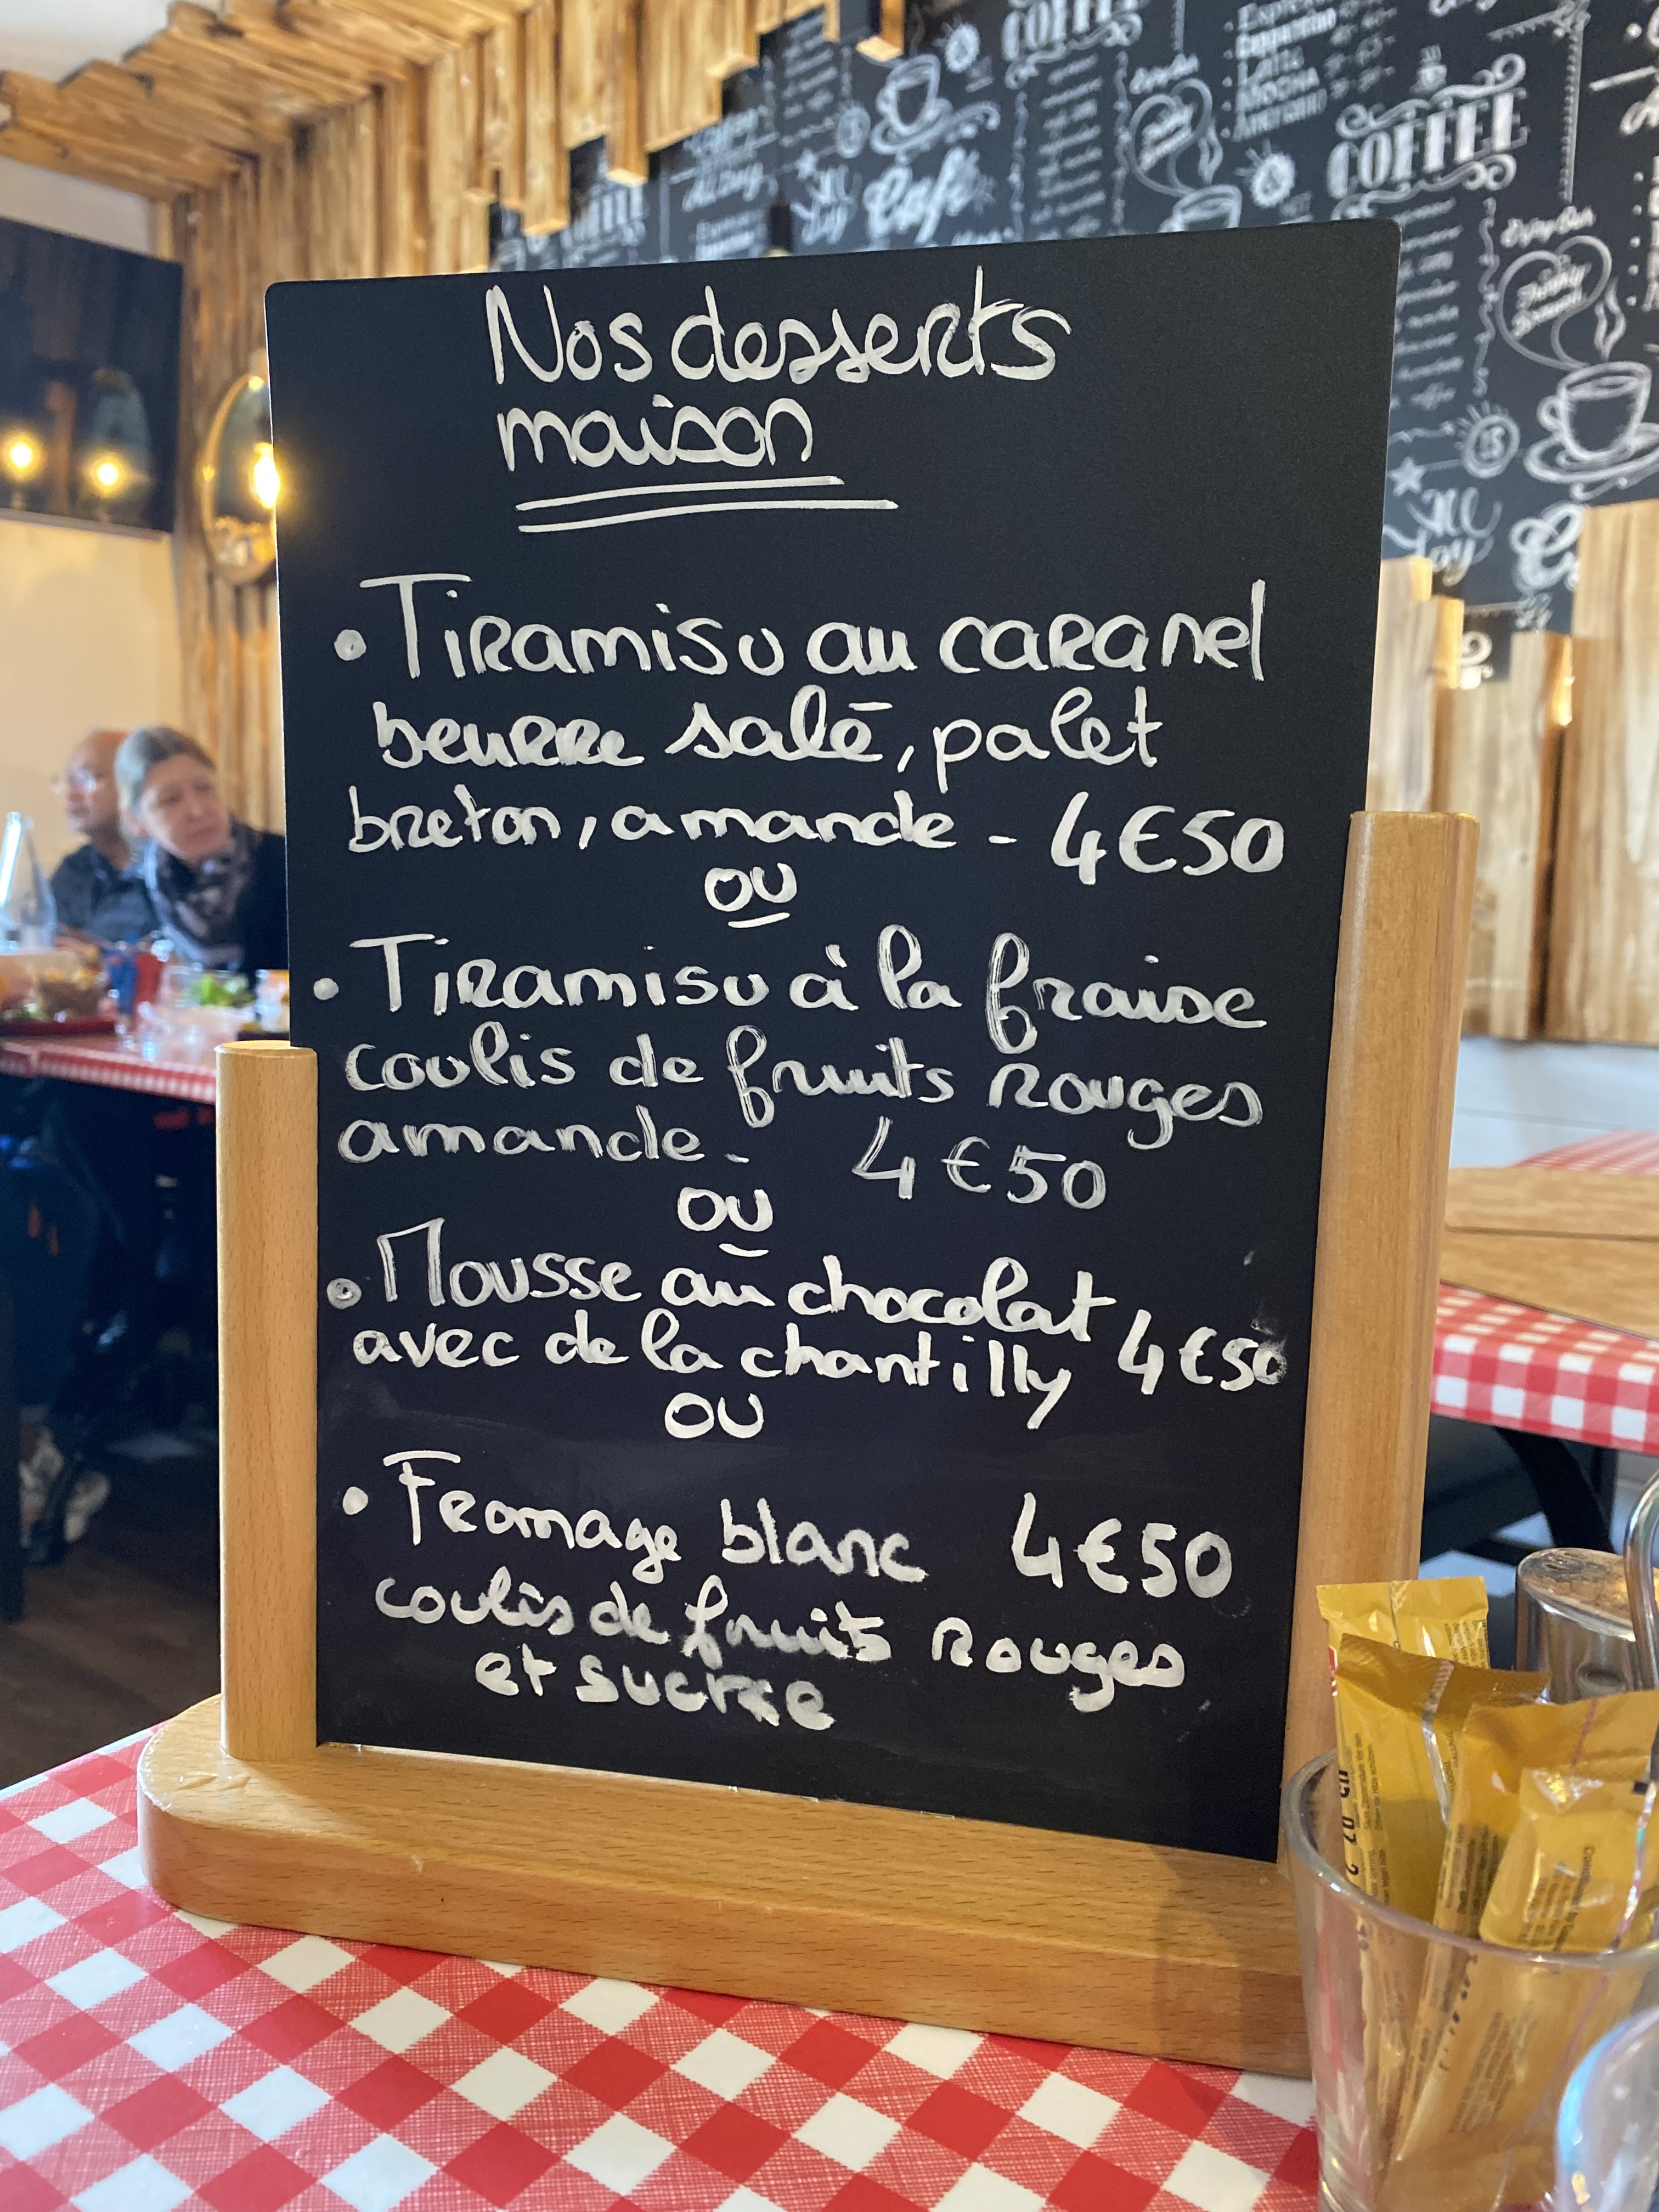 Nos desserts
maison
• Tiramisu au caramel
beurre salé, palet
breton, amande - 4€50
ou
• Tiramisu à la fraise
coulis de fruits rouges
amande - 4€50
ou
• Mousse au chocolat
avec de la chantilly 4€50
ou
• Fromage blanc 4€50
coulis de fruits rouges
et sucre
COFFEE
Café
COFFEE